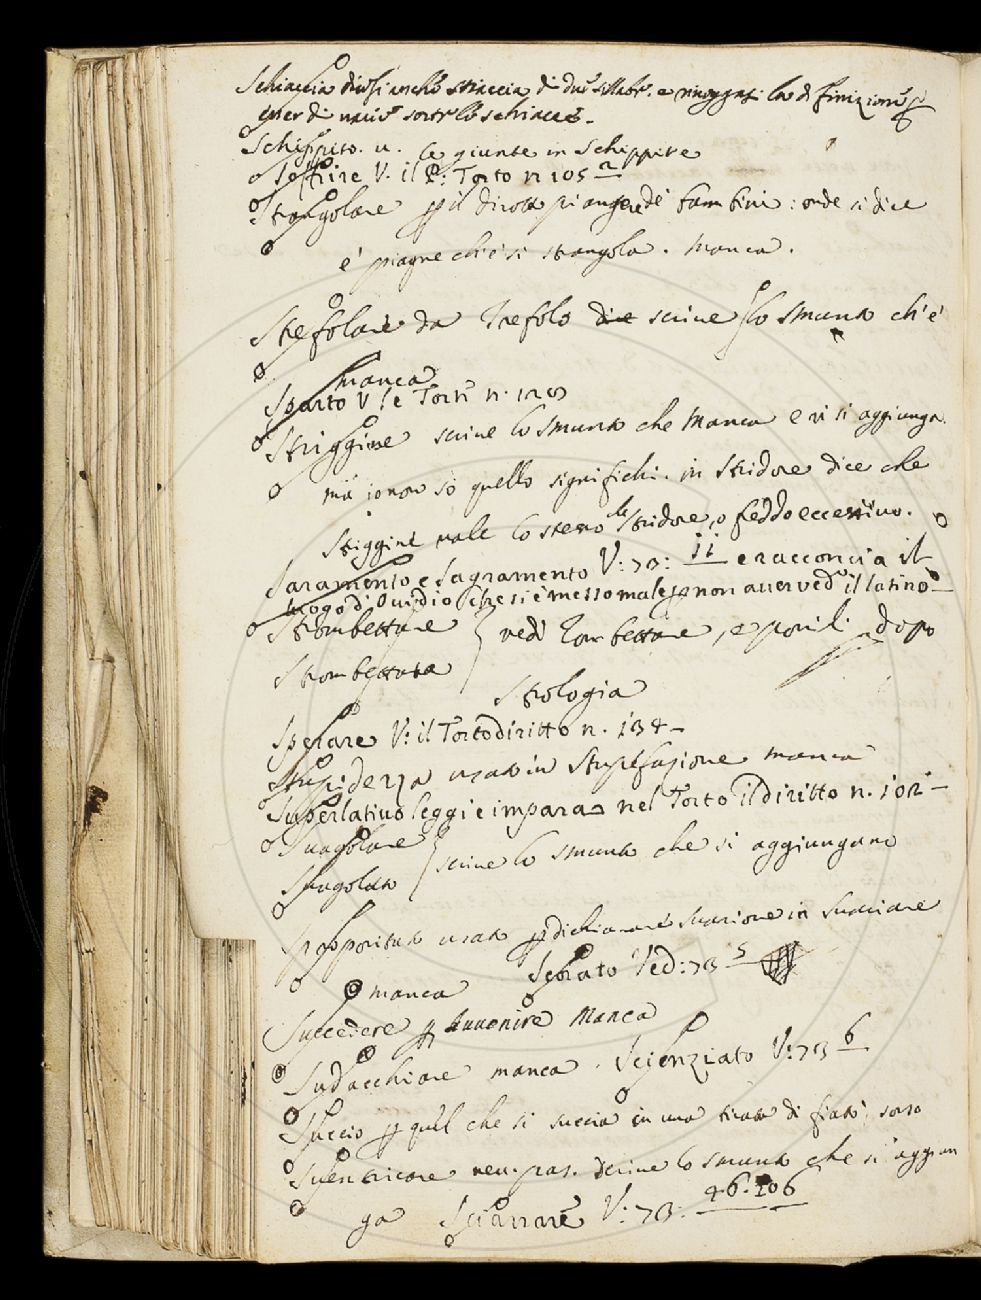 Schiaccia dicesi anche stiaccia di due sillab. e
Schippito. u. le giunte in Schippire
V. il P: Torto n 105
Strangolare p il dirotto piangere de bambini: onde si dice
e' piagne ch'e' si strangola. Manca.
Strefolare da Trefolo scrive lo Smunto ch'e'
manca
Sparto V. le Torti n.
Striggine scrive lo Smunto che Manca e vi si aggiunga.
ma io non so quello significhi. in Stridore dice che
Striggine vale lo stesso che Stridore, o freddo eccessivo.
Saramento e Sagramento V: 73: 11 e racconcia il
luogo di Ouidio che si è messo male p non auer ved.o il latino
Strombettare } vedi Trombettare, e dopo
Strombettata
Strologia
Sperare V: il Torto diritto n. 134
Stupidezza usato in Stupefazione manca
Superlatiuo leggi e impara nel Torto il diritto n. 102
Suagolare } scriue lo Smunto che si aggiungano
Suagolato
usato p dichiarare in
Scorato Ved: 73 5
manca
Succedere p Auuenire Manca
Sudacchiare manca. Scienziato V: 73 6
Succio p quel che si succia in una tirata di fiato; sorso
Suentricare neu. pas. scriue lo Smunto che si aggiun
ga Sciarrare V: 73. 46. 106